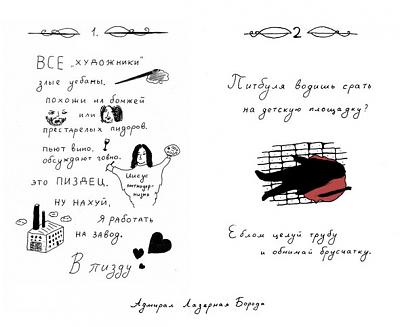 1.
ВСЕ „художники"
злые уебаны,
похожи на бомжей
или
престарелых пидоров.
пьют вино,
обсуждают говно.
Иисус
постмодер-
низма
это ПИЗДЕЦ.
ну нахуй,
Я работать
на завод.
В пизду
2
Питбуля водишь срать
на детскую площадку?
Еблом целуй трубу
и обнимай брусчатку.
Адмирал Лазерная Борода